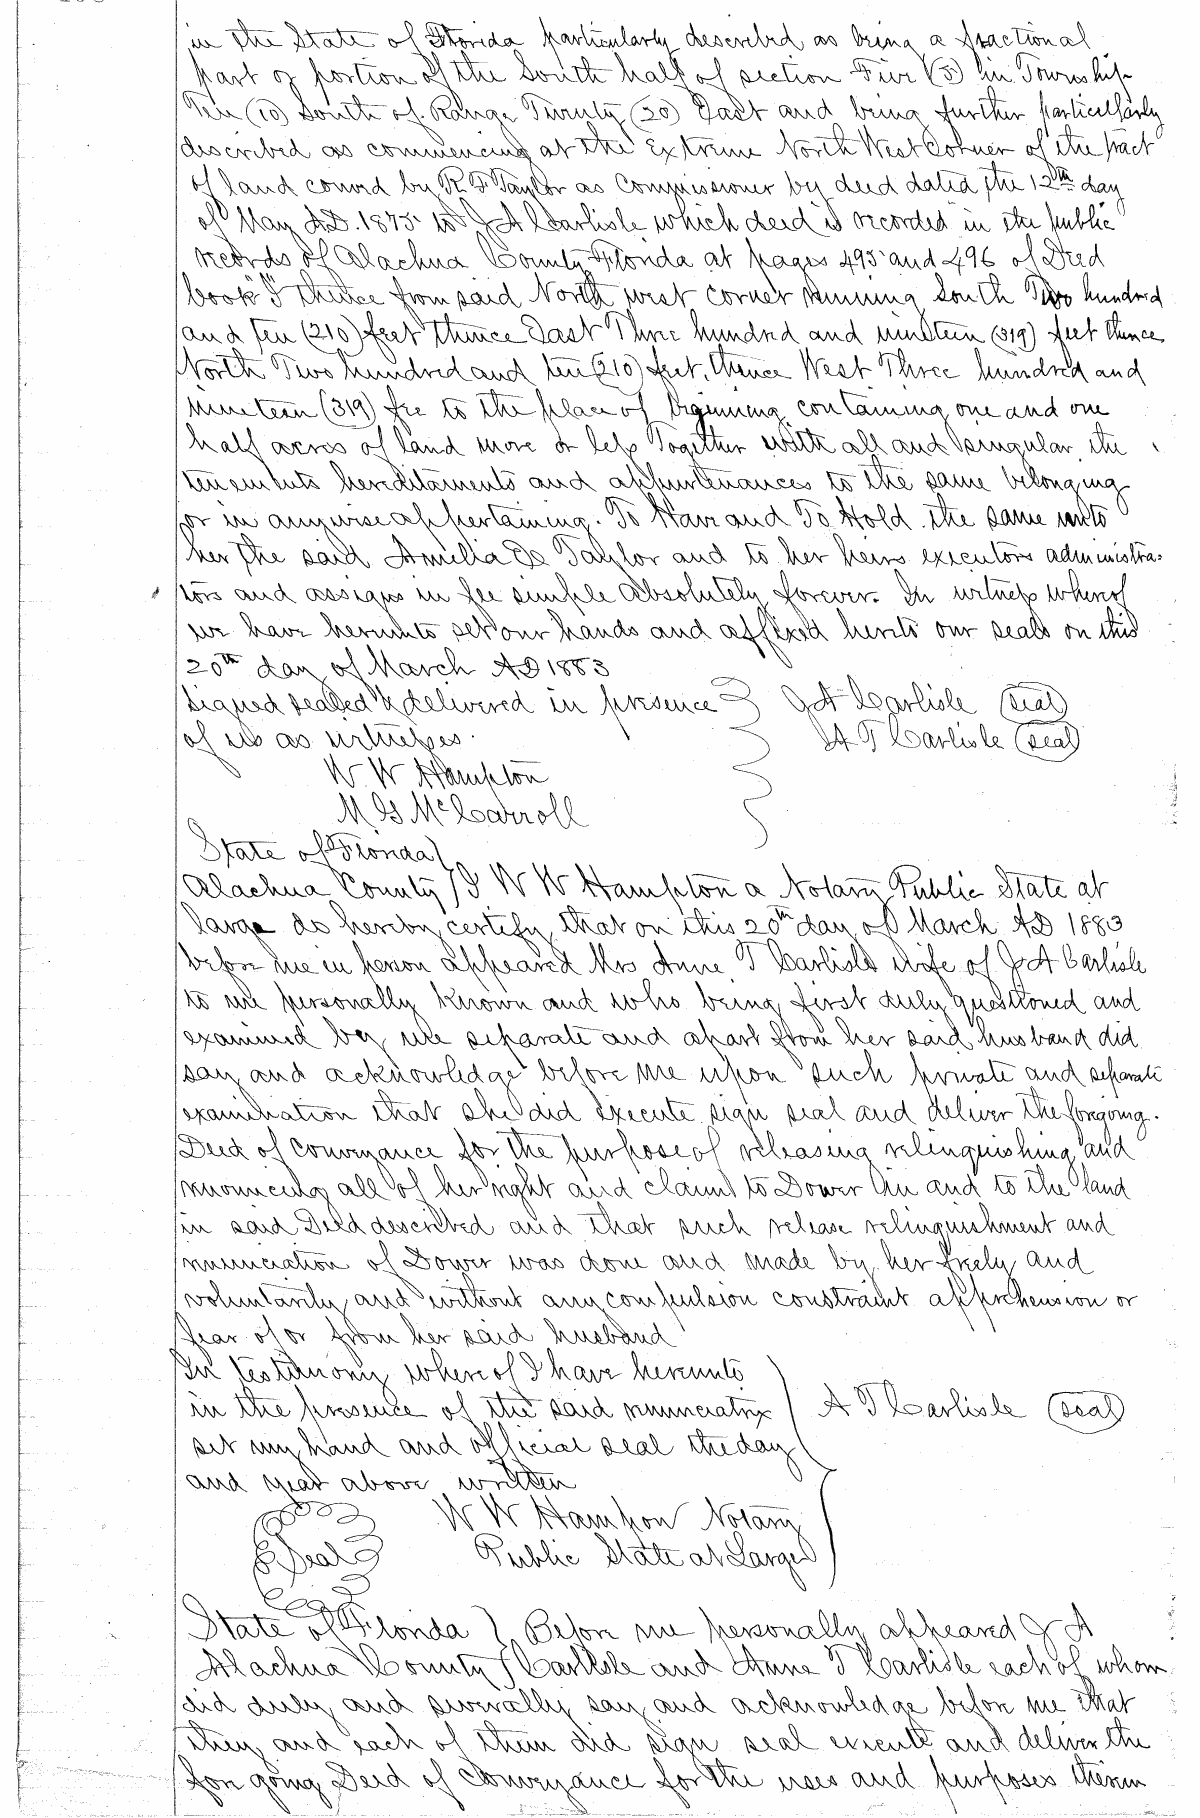 in the State of Florida particularly described as being a fractional
part or portion of the South half of section Five (5) in Township
Ten (10) South of Range Twenty (20) East and being further particularly
described as commencing at the Extreme North West Corner of the tract
of land convd by R F Taylor as Commissioner by deed dated the 12th day
of May A.D. 1875 to J A Carlisle which deed is recorded in the public
records of Alachua County Florida at pages 495 and 496 of Deed
book "I" thence from said North west corner running South Two hundred
and ten (210) feet thence East Three hundred and nineteen (319) feet thence
North Two hundred and ten (210) feet, thence West Three hundred and
nineteen (319) fee to the place of beginning containing one and one
half acres of land more or less Together with all and singular the
tenements hereditaments and appurtenances to the same belonging
or in anywise appertaining. To Have and To Hold the same unto
her the said Amelia E Taylor and to her heirs executors administra-
tors and assigns in fee simple absolutely forever. In witness whereof
we have hereunto set our hands and affixed hereto our seals on this
20th day of March AD 1883
Signed sealed & delivered in presence J A Carlisle (seal)
of us as witnesses. A T Carlisle (seal)
W W Hampton
M G McCarroll
State of Florida
Alachua County I W W Hampton a Notary Public State at
large do hereby certify that on this 20th day of March AD 1883
before me in person appeared Mrs Anne T Carlisle wife of J A Carlisle
to me personally known and who being first duly questioned and
examined by me separate and apart from her said husband did
say and acknowledge before me upon such private and separate
examination that she did execute sign seal and deliver the foregoing.
Deed of conveyance for the purpose of releasing relinquishing and
renouncing all of her right and claim to Dower in and to the land
in said Deed described and that such release relinquishment and
renunciation of Dower was done and made by her freely and
voluntarily and without any compulsion constraint apprehension or
fear of or from her said husband
In testimony whereof I have hereunto
in the presence of the said renunciatrix A T Carlisle (seal)
set my hand and official seal the day
and year above written
W W Hampon Notary
Seal Public State at Large
State of Florida Before me personally appeared J A
Alachua County Carlisle and Anne T Carlisle each of whom
did duly and severally say and acknowledge before me that
they and each of them did sign seal execute and deliver the
foregoing Deed of Conveyance for the uses and purposes therein